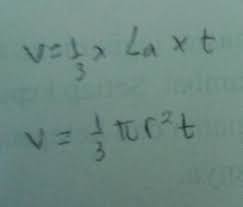 v = 1/3 x La x t
v = 1/3 πr²t